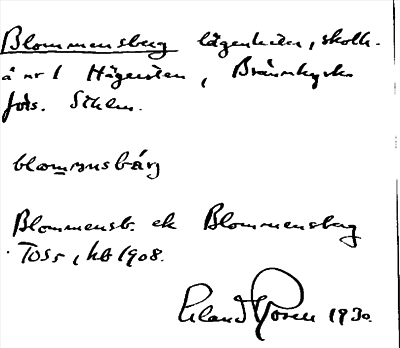 Blommensberg lägenheter, skolh.
å nr 1 Hägersten, Brännkyrka
förs. Sthlm.
blommnsbárj
Blommensb. ek Blommensberg
Toss, hb 1908.
Erland Rosell 1930.